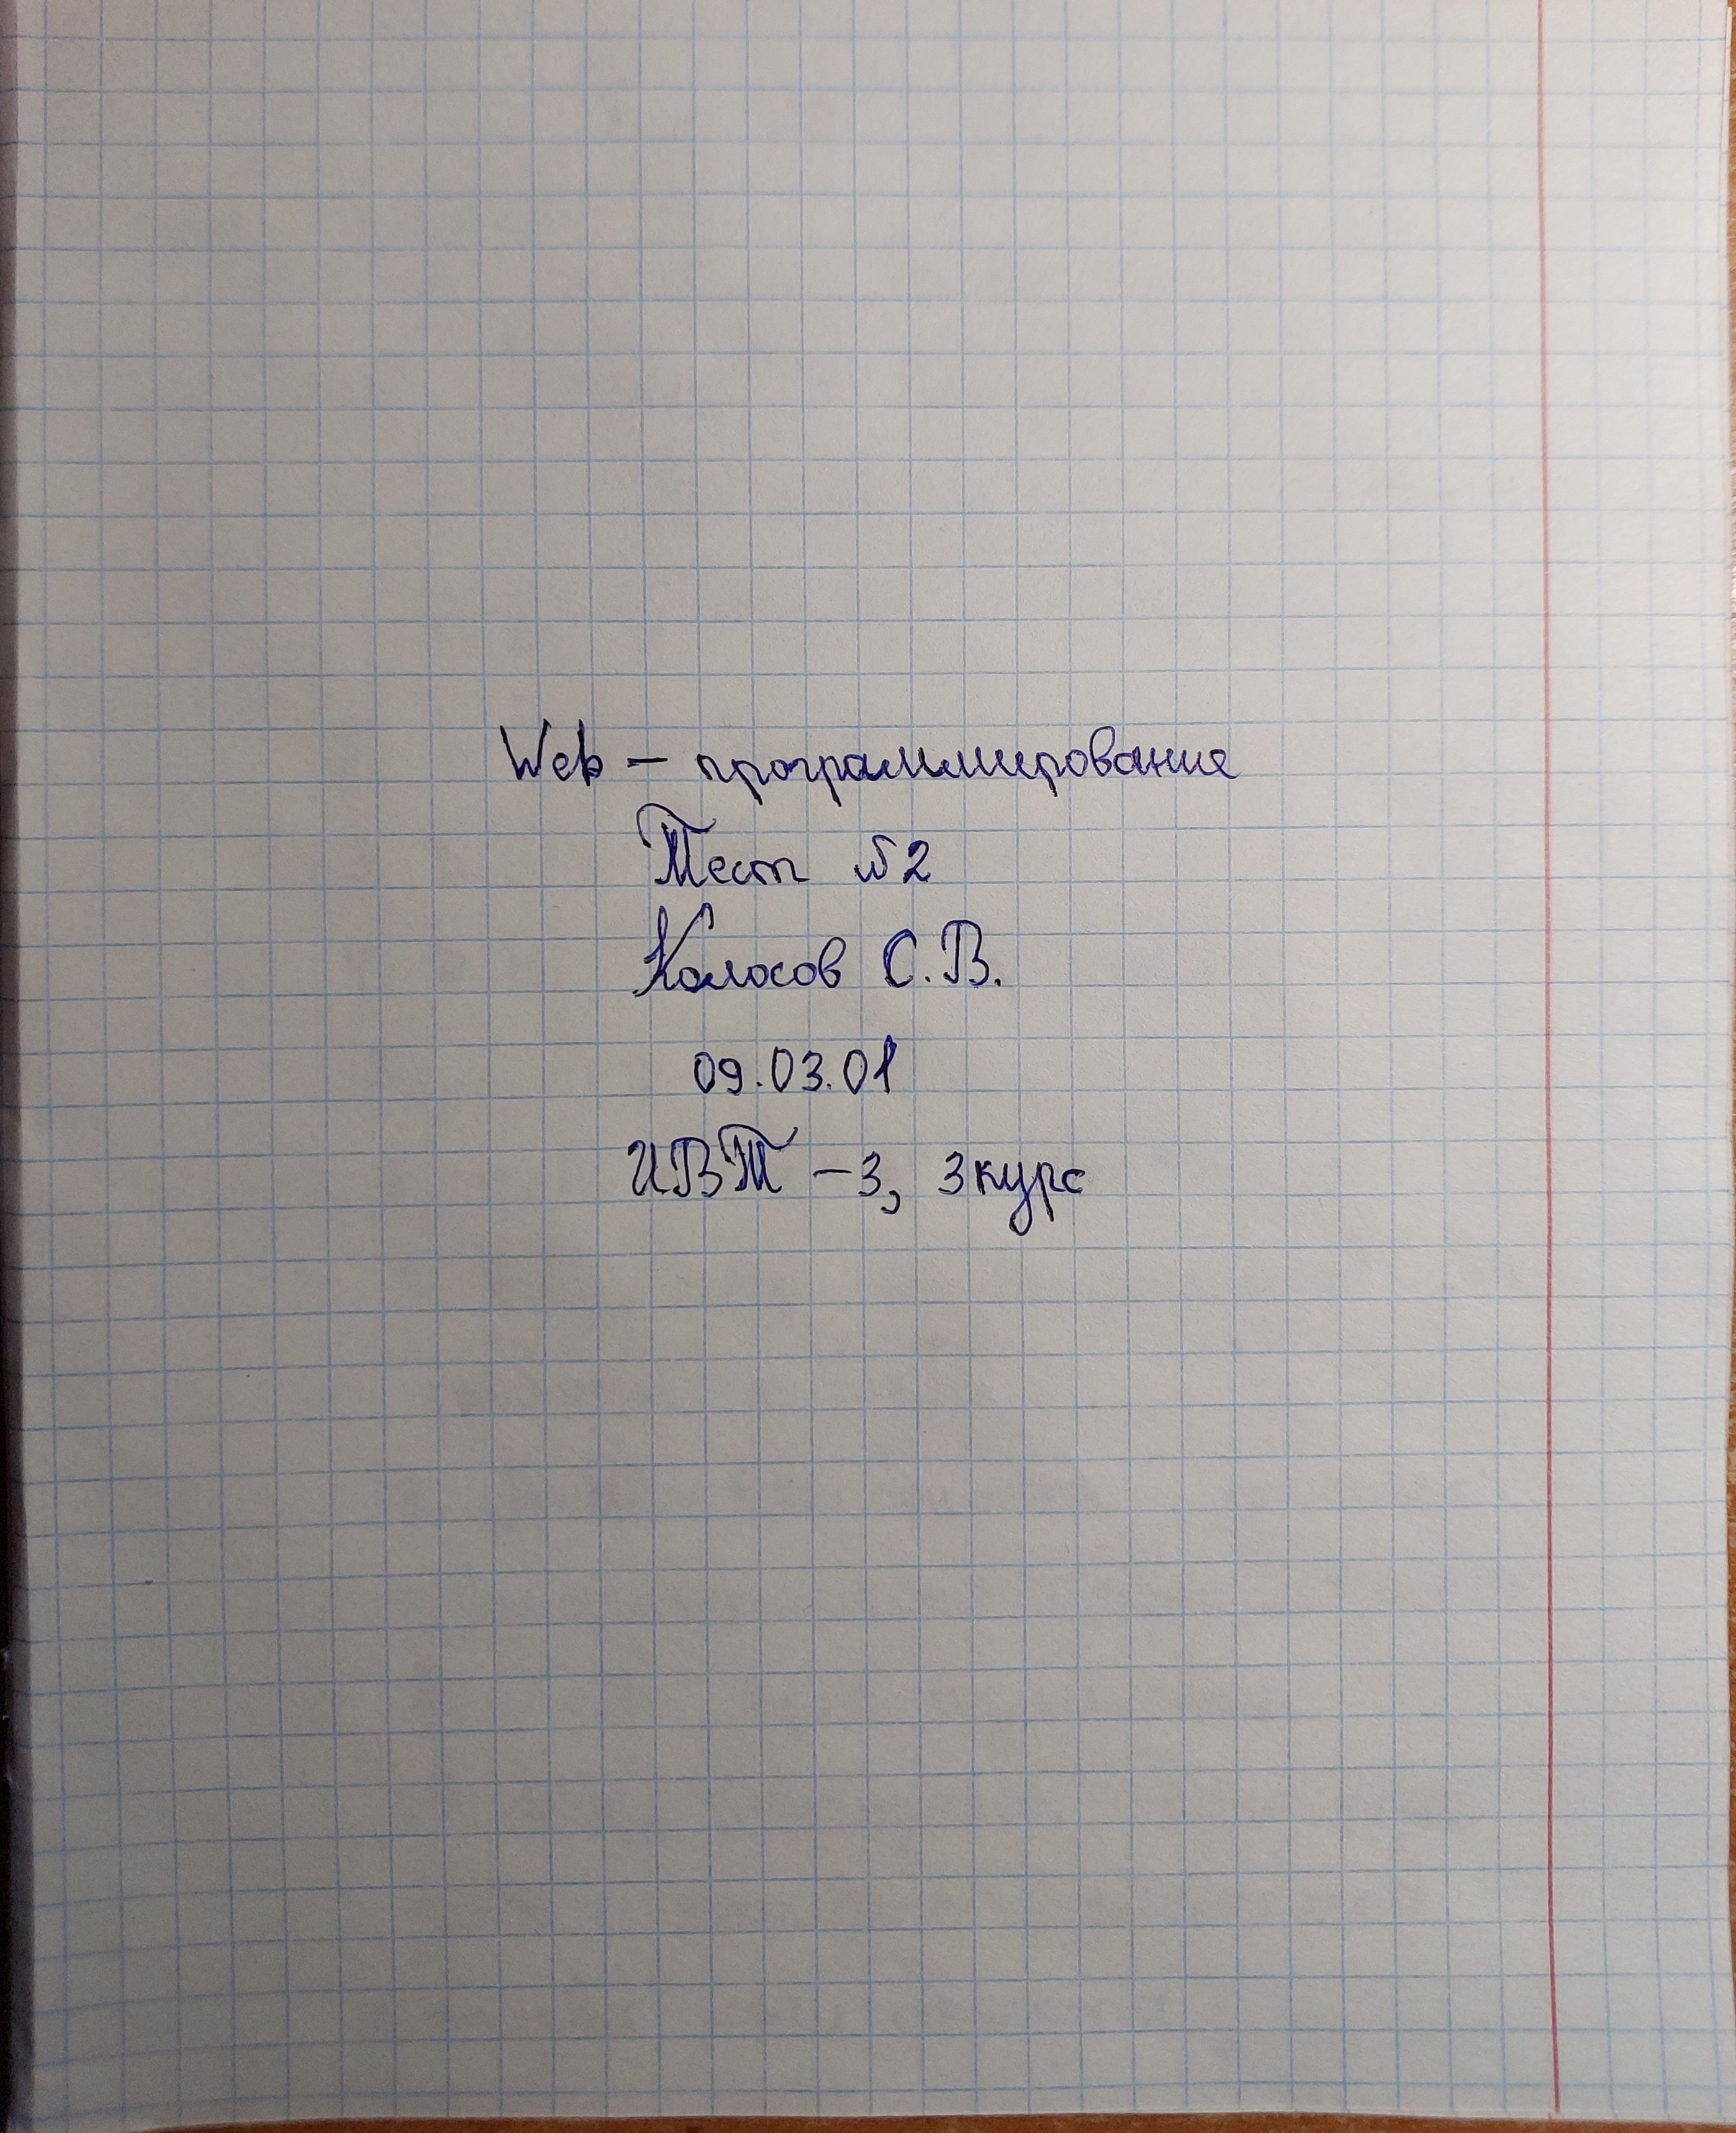 Web – программирование
Тест №2
Колосов С.В.
09.03.01
ИВТ – 3, 3 курс